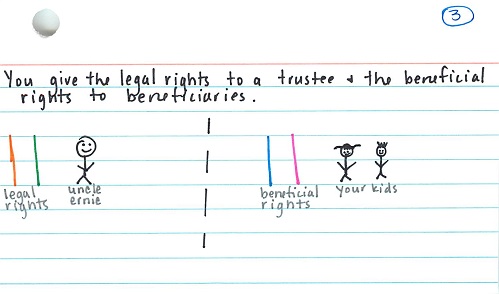 3
You give the legal rights to a trustee & the beneficial
rights to beneficiaries.
legal
rights
uncle
ernie
beneficial
rights
your kids